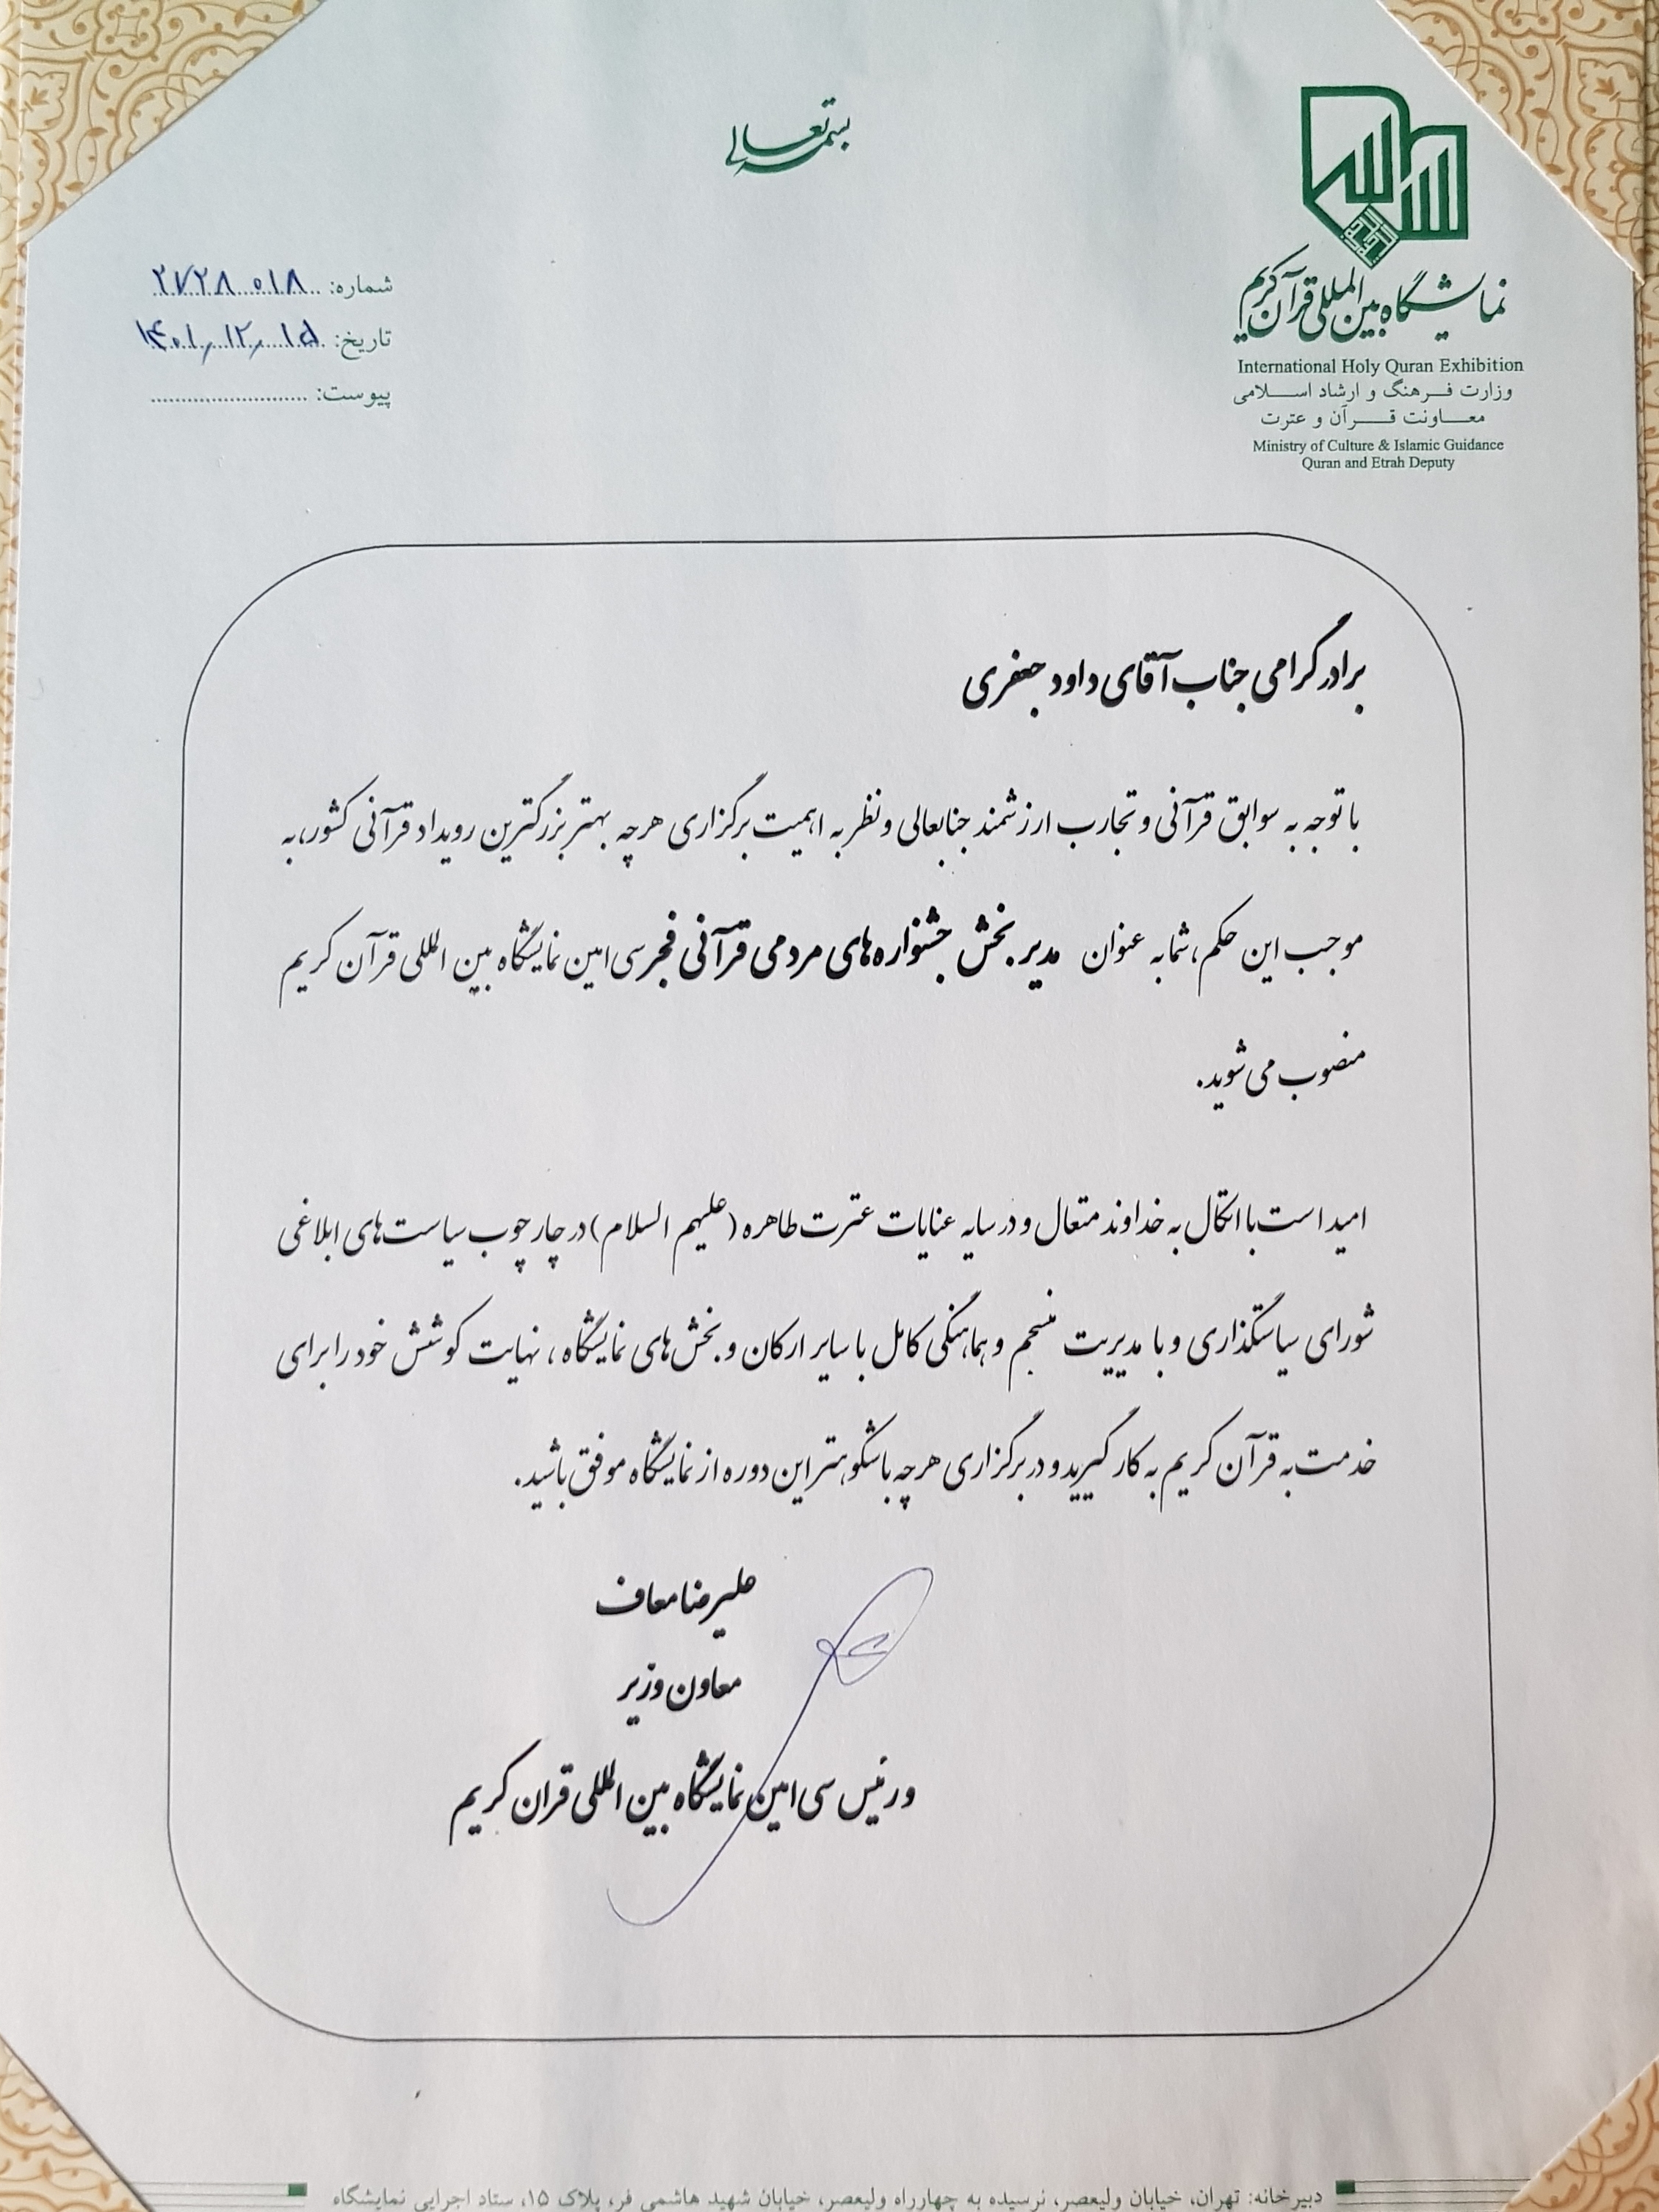 بسمه تعالی
نمایشگاه بین المللی قرآن کریم
International Holy Quran Exhibition
وزارت فرهنگ و ارشاد اسلامی
معاونت قرآن و عترت
Ministry of Culture & Islamic Guidance
Quran and Etrah Deputy
شماره: ۲۷۲۸۰۱۸
تاریخ: ۱۴۰۱/۱۲/۱۵
پیوست:
برادر گرامی جناب آقای داود جعفری
با توجه به سوابق قرآنی و تجارب ارزشمند جنابعالی و نظر به اهمیت برگزاری هرچه بهتر بزرگترین رویداد قرآنی کشور، به
موجب این حکم، شما به عنوان مدیر بخش جشنواره های مردمی قرآنی فجر سی امین نمایشگاه بین المللی قرآن کریم
منصوب می شوید.
امید است با اتکال به خداوند متعال و در سایه عنایات عترت طاهره (علیهم السلام) در چارچوب سیاست های ابلاغی
شورای سیاستگذاری و با مدیریت منسجم و هماهنگی کامل با سایر ارکان و بخش های نمایشگاه، نهایت کوشش خود را برای
خدمت به قرآن کریم به کار گیرید و در برگزاری هرچه باشکوهتر این دوره از نمایشگاه موفق باشید.
علیرضا معاف
معاون وزیر
و رئیس سی امین نمایشگاه بین المللی قران کریم
دبیرخانه: تهران، خیابان ولیعصر، نرسیده به چهارراه ولیعصر، خیابان شهید هاشمی فر، پلاک ۱۵، ستاد اجرایی نمایشگاه